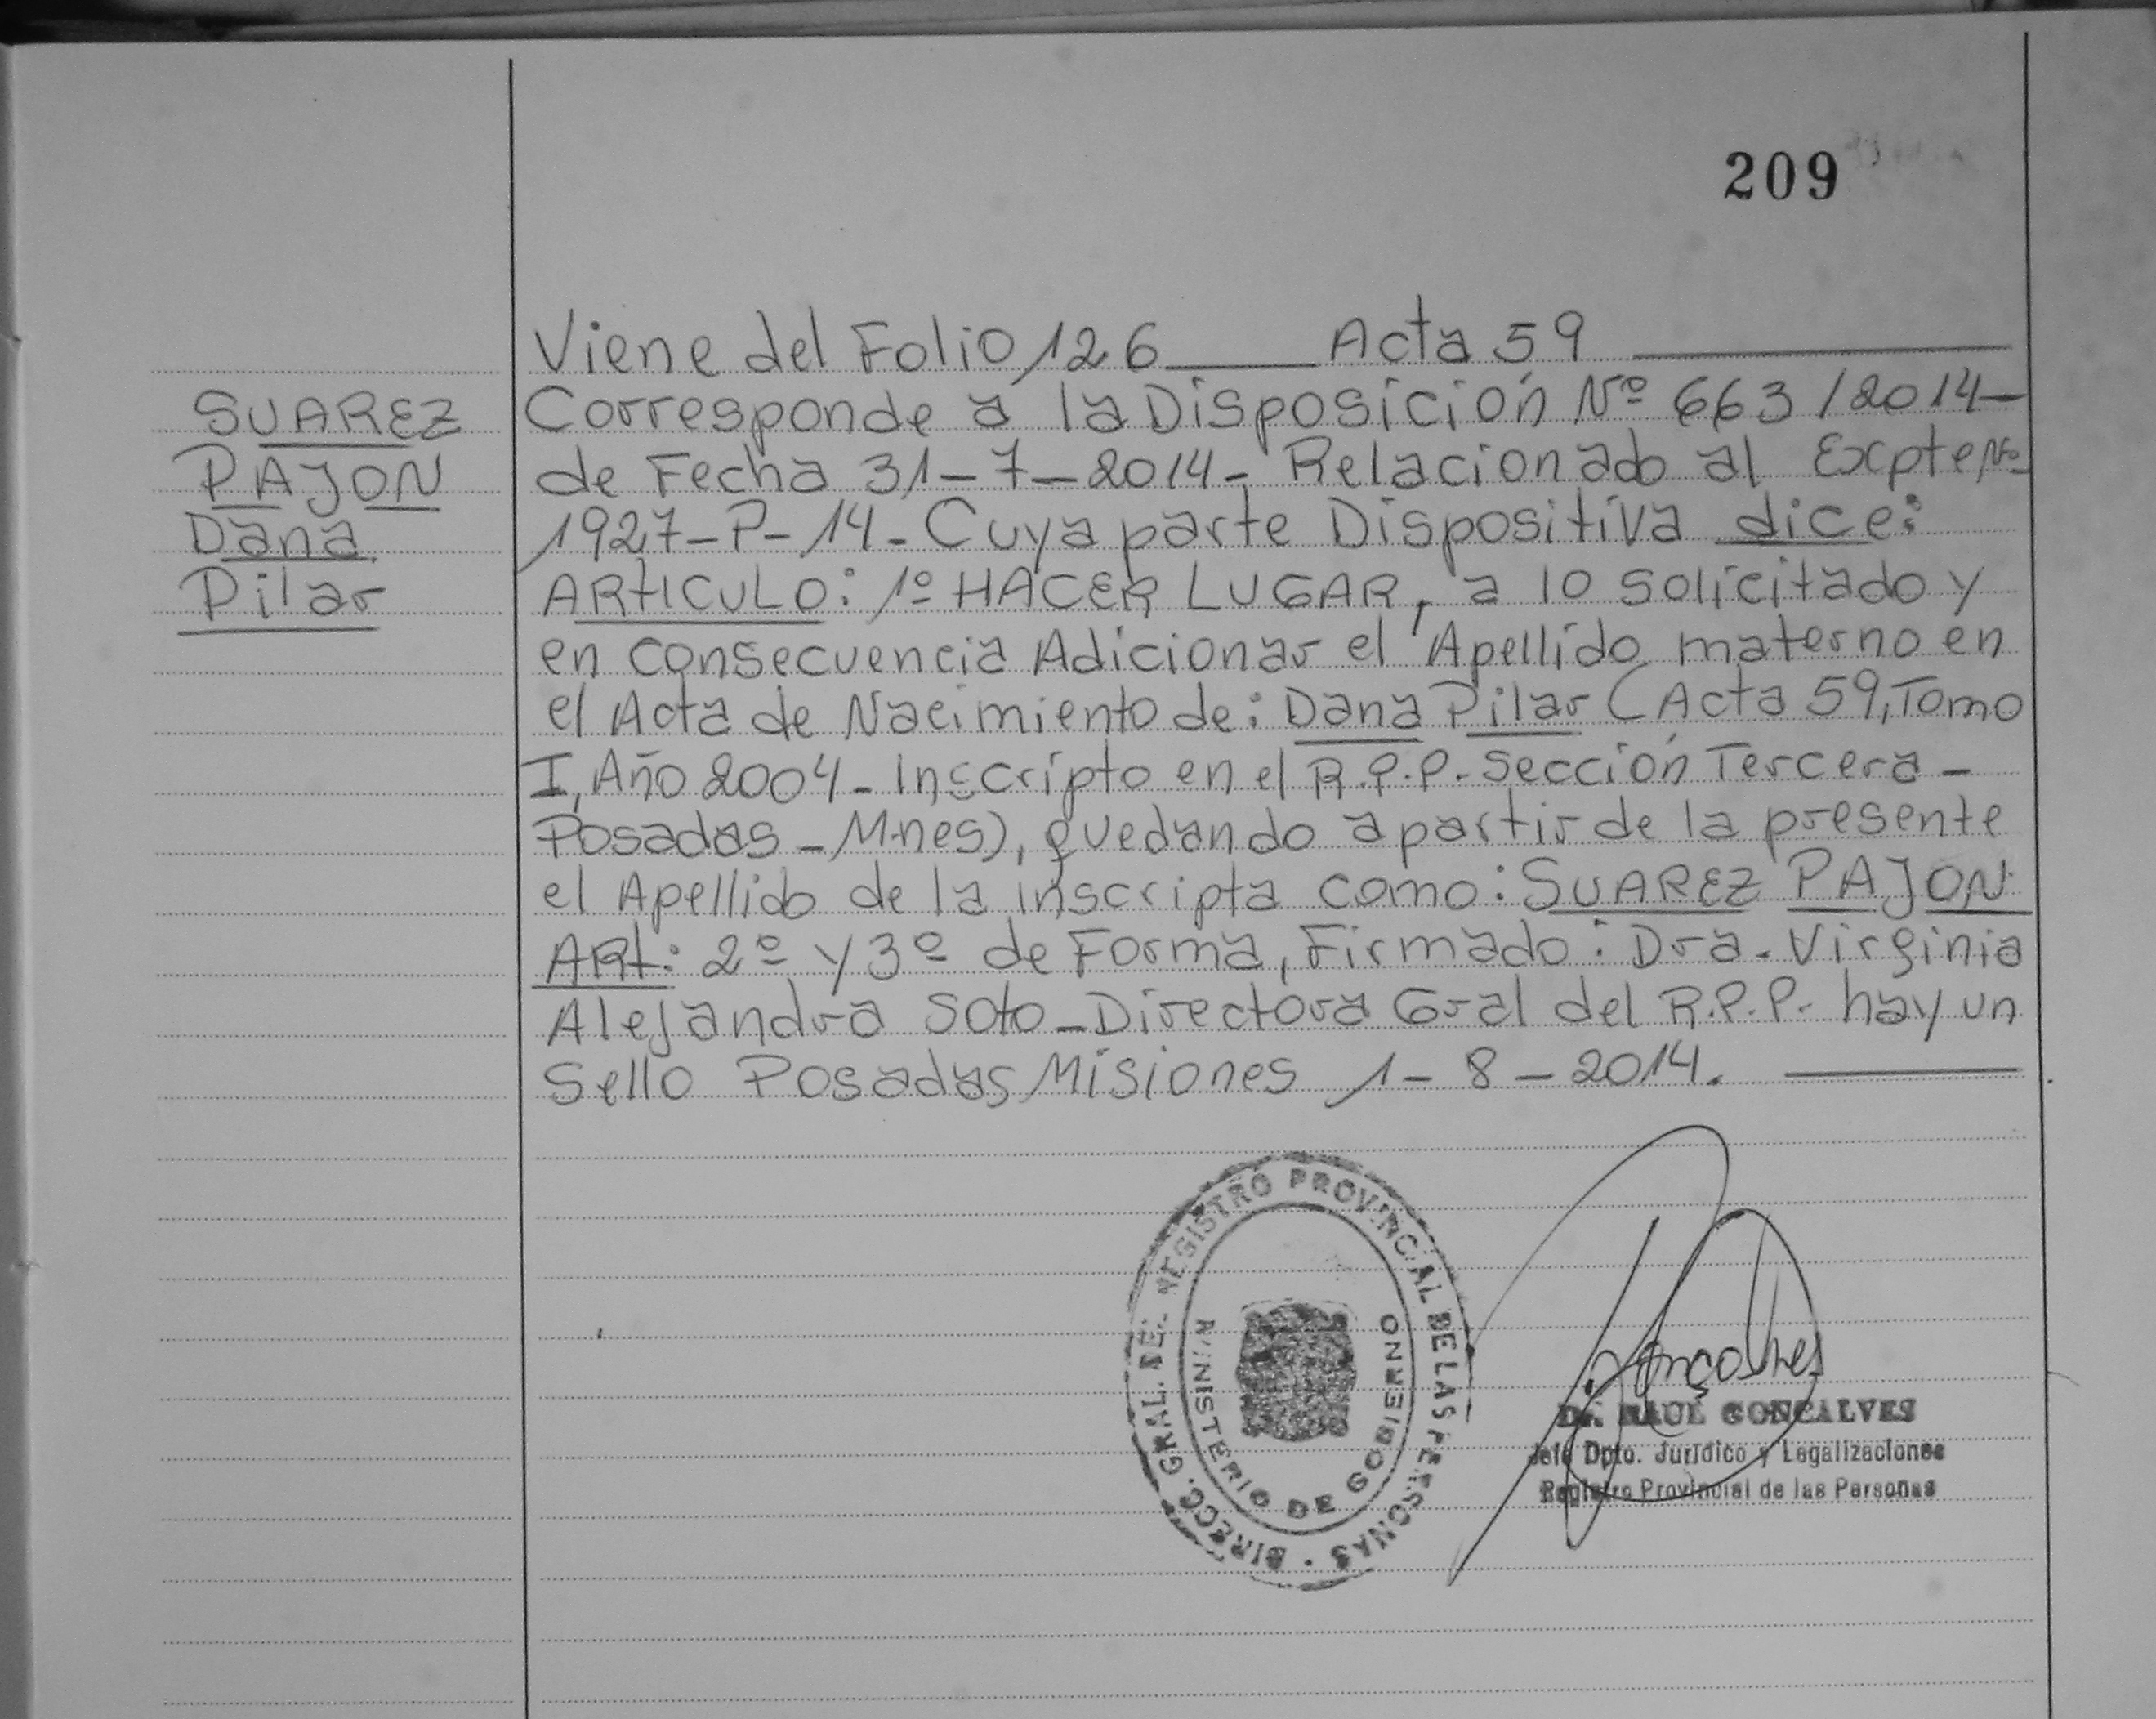 209
SUAREZ
PAJON
Dana
Pilar
Viene del Folio 126 ____ Acta 59 ____
Corresponde a la Disposición Nº 663/2014-
de Fecha 31-7-2014- Relacionado al Expte Nº
1927-P-14- Cuya parte Dispositiva dice:
ARTICULO: 1º HACER LUGAR, a lo solicitado y
en consecuencia Adicionar el Apellido materno en
el Acta de Nacimiento de: Dana Pilar (Acta 59, Tomo
I, Año 2004- Inscripto en el R.P.P. Sección Tercera -
Posadas - M.nes), quedando a partir de la presente
el Apellido de la inscripta como: SUAREZ PAJON
ART: 2º y 3º de Forma, Firmado: Dra. Virginia
Alejandra Soto - Directora Gral del R.P.P. hay un
Sello Posadas Misiones 1-8-2014. ____
DIRECC. GRAL. DEL REGISTRO PROVINCIAL DE LAS PERSONAS
MINISTERIO DE GOBIERNO
Gonçalves
Dr. RAUL GONCALVES
Jefe Dpto. Jurídico y Legalizaciones
Registro Provincial de las Personas